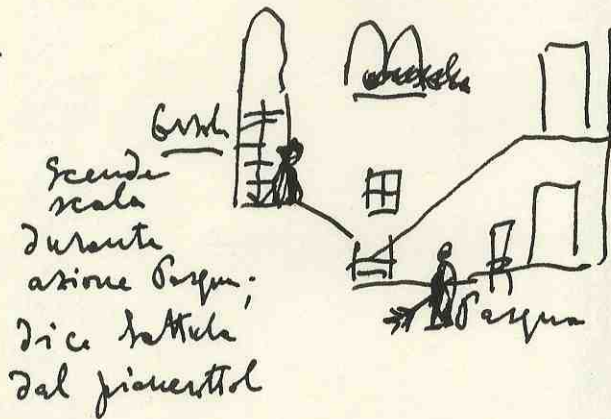 Orsola
scende
scala
durante
azione Pasqua;
dice battuta
dal pianerottol
Pasqua